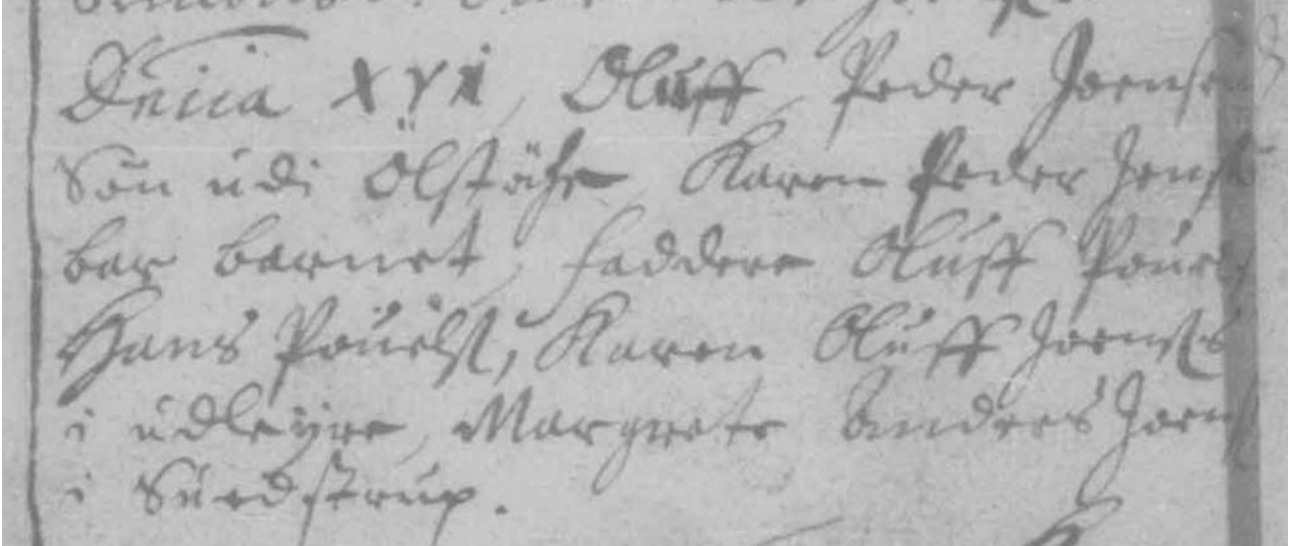 Dnica XVI, Oluff Peder Joens
Sön udi Ölstöke, Karen Peder Jens
bar barnet, faddere Oluff Pouels
Hans Pouelss, Karen Oluff Joenss
i udleyre, Margrete Anders Joens
i Surdstrup.